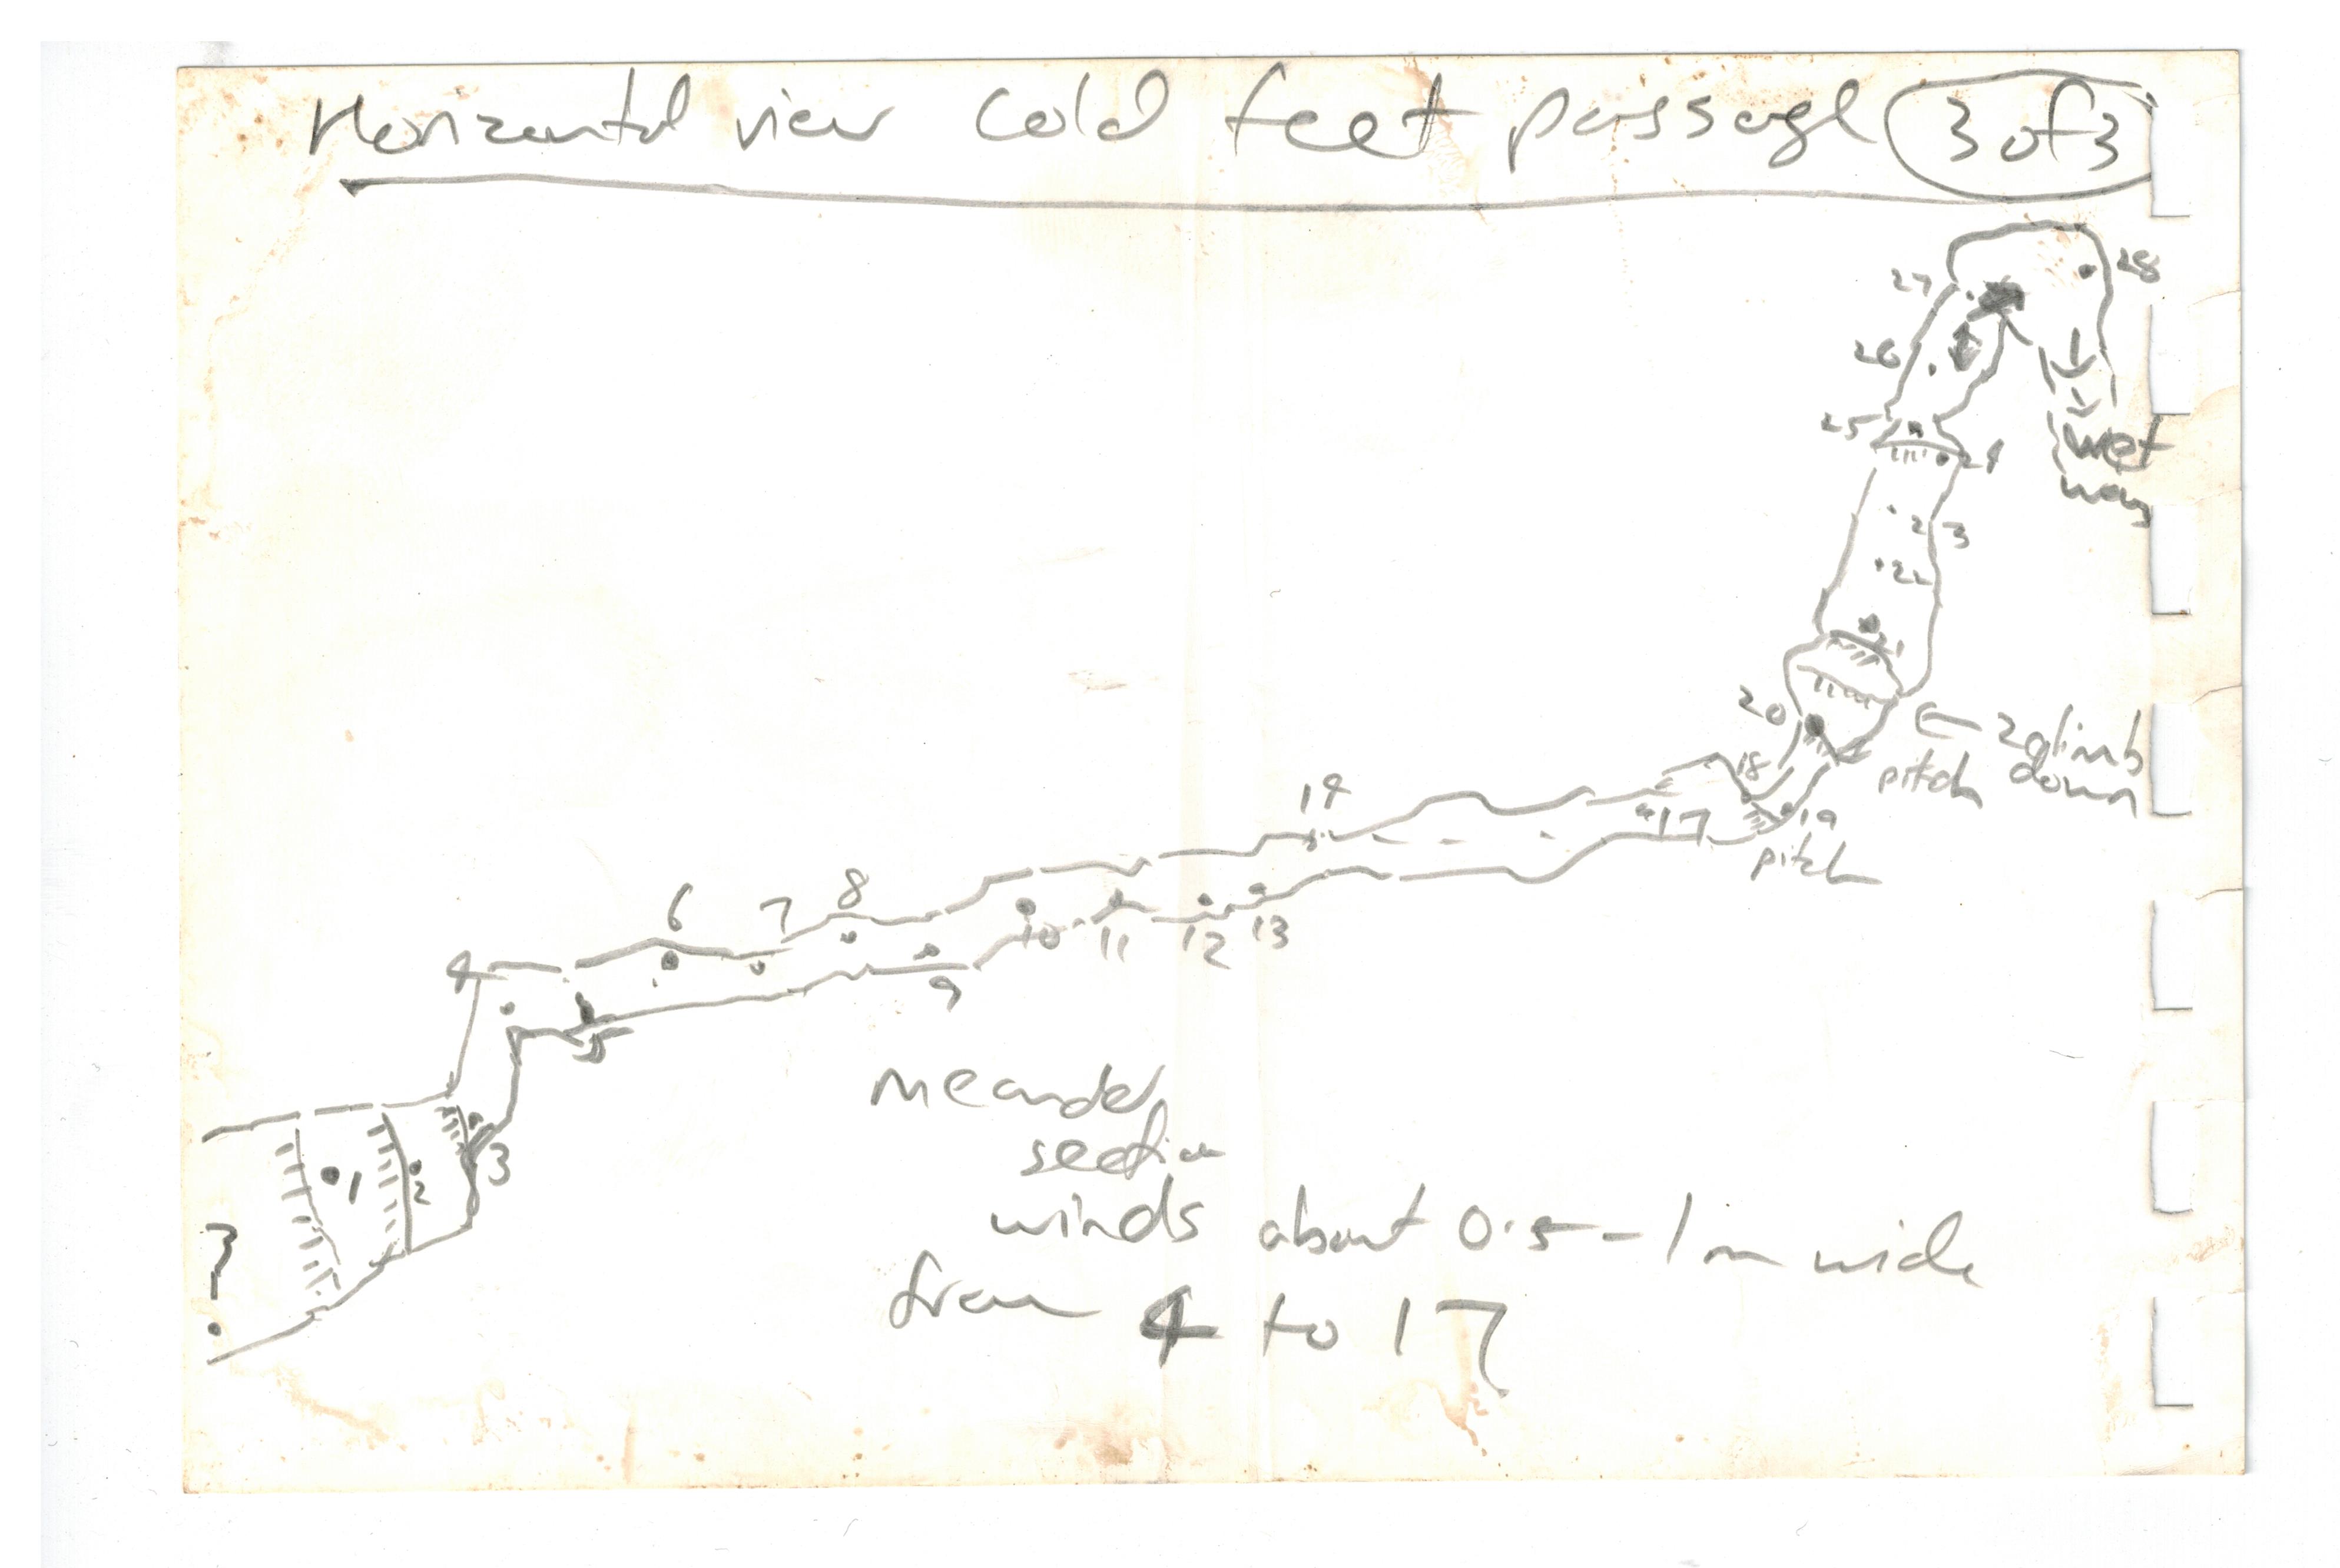 Horizontal view Cold feet passage 3 of 3
28
27
26
25
24
wet
way
23
22
21
20
← 2 climb
pitch down
18
19
17
pitch
14
13
12
11
10
9
8
7
6
5
4
3
2
1
?
meander
section
winds about 0.5-1m wide
from 4 to 17